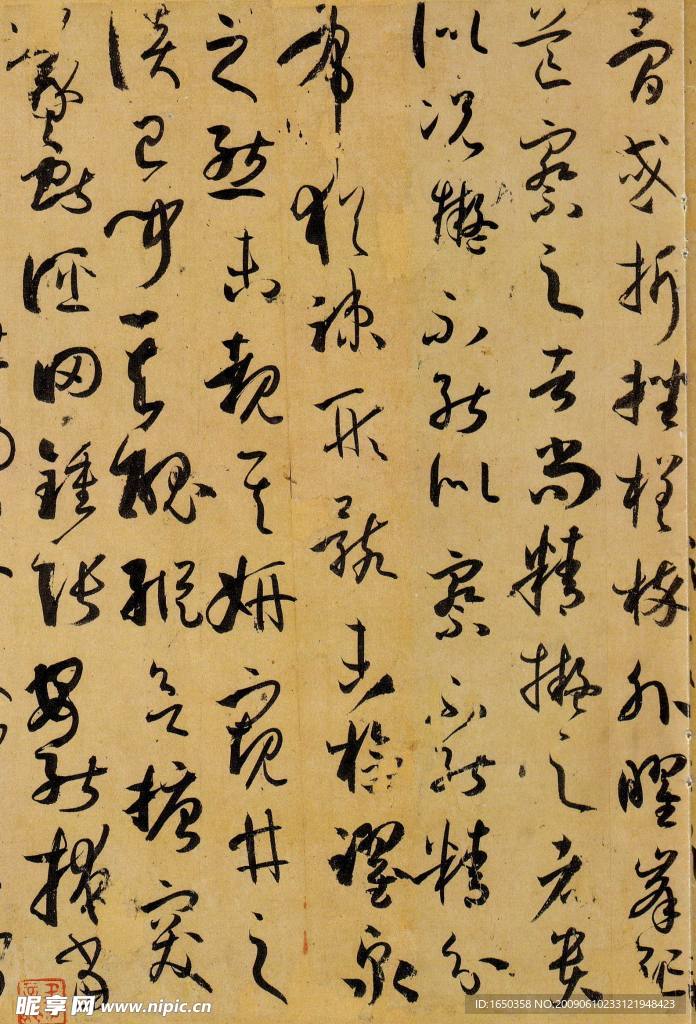 骨或折挫槎枿外曜峯
芒察之者尚精擬之者貴
似況擬不能似察不能精分
布猶疎形骸未檢躍泉
之態未覩其妍窺井之
談已聞其醜縱欲搪突
羲獻誣罔鍾張安能掩當
昵享网 www.nipic.cn
ID:1650358 NO.20090610233121948423